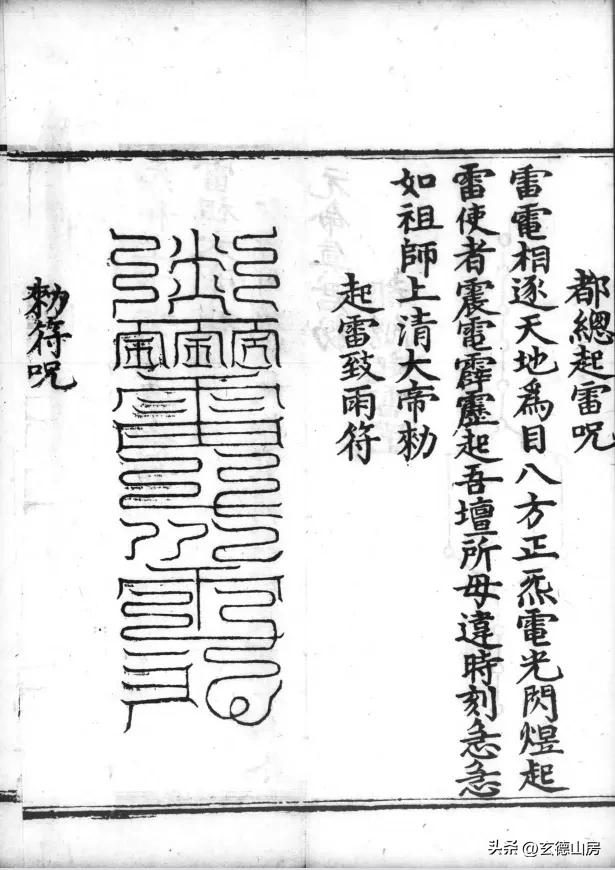 都總起雷呪
雷電相逐天地為目八方正炁電光閃煜起
雷使者震電霹靂起吾壇所毋違時刻急急
如祖師上清大帝勑
起雷致雨符
勑符呪
头条 @玄德山房